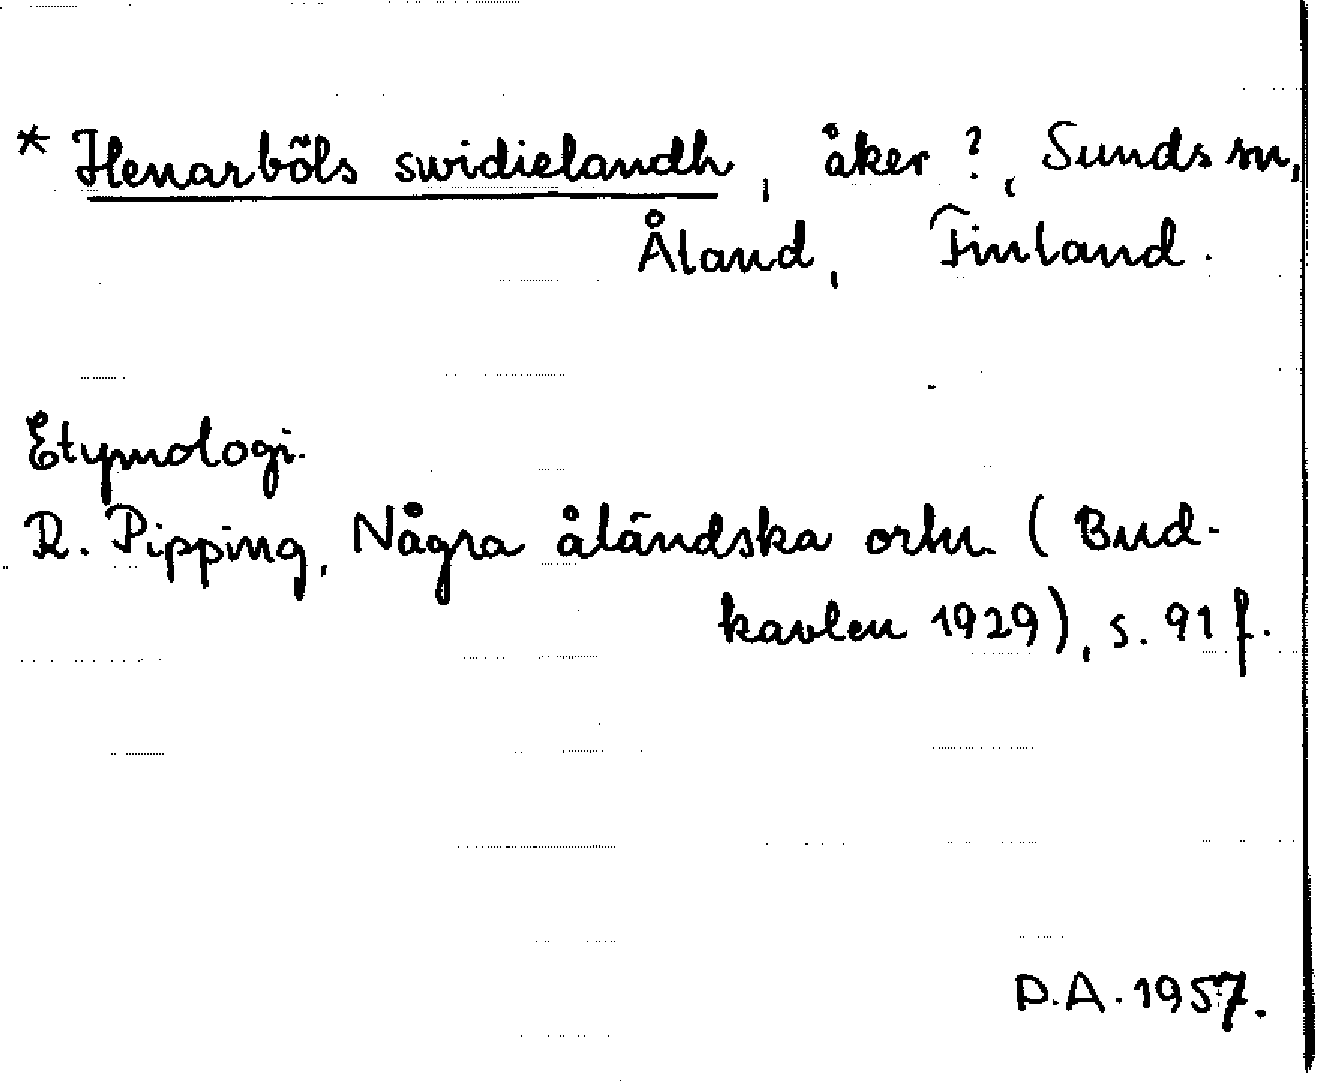 * Henarböls swidielandh, åker?, Sunds sn,
Åland, Finland.
Etymologi.
R. Pipping, Några åländska ortn. (Bud-
kavlen 1929), s. 91 f.
D.A. 1957.